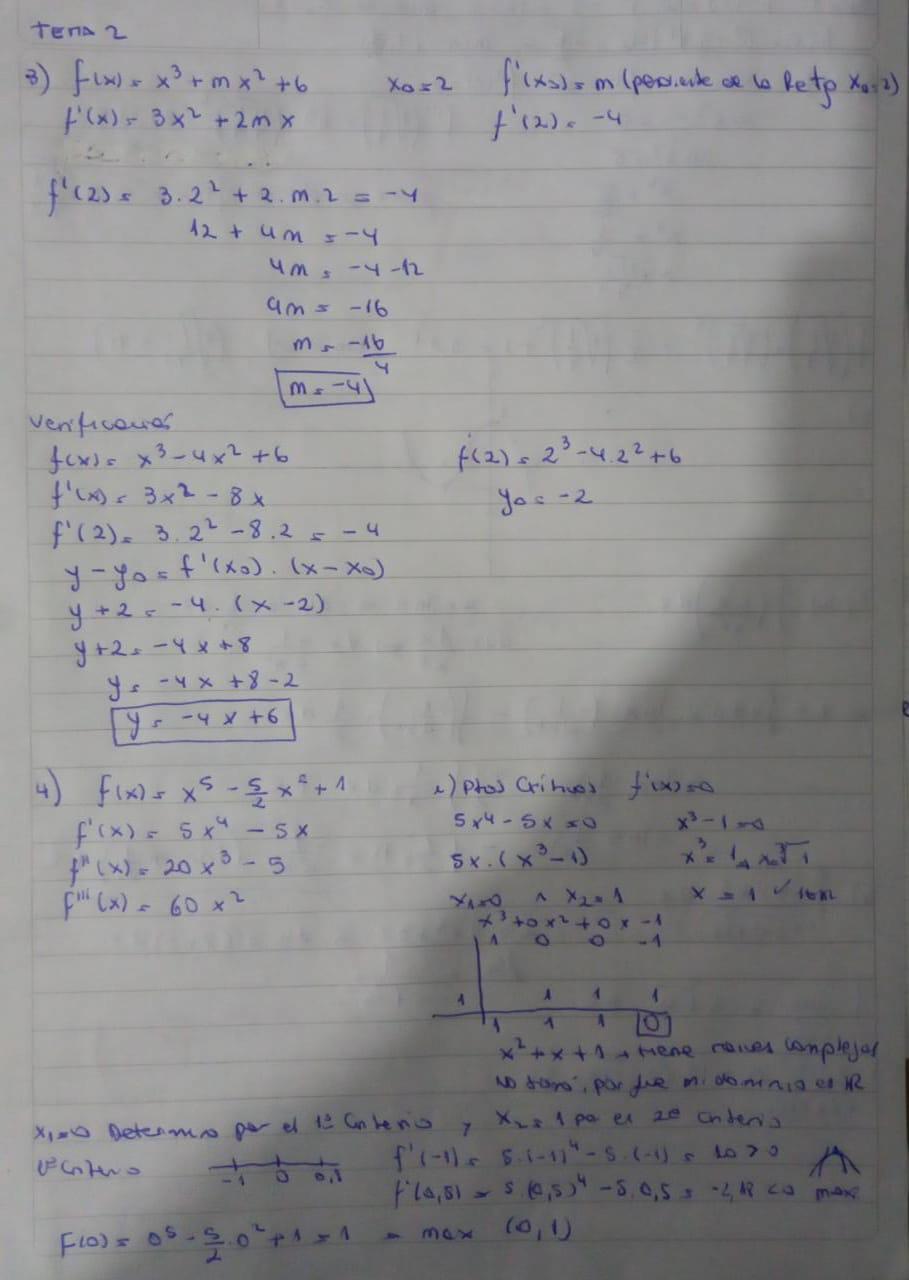 TEMA 2
3) f(x) = x³ + mx² + 6   x₀ = 2   f'(x₀) = m (pendiente de la Retg x₀=2)
f'(x) = 3x² + 2mx   f'(2) = -4
f'(2) = 3.2² + 2.m.2 = -4
12 + 4m = -4
4m = -4 -12
4m = -16
m = -16/4
m = -4
Verificamos
f(x) = x³ - 4x² + 6   f(2) = 2³ - 4.2² + 6
f'(x) = 3x² - 8x   y₀ = -2
f'(2) = 3.2² - 8.2 = -4
y - y₀ = f'(x₀) . (x - x₀)
y + 2 = -4 . (x - 2)
y + 2 = -4x + 8
y = -4x + 8 - 2
y = -4x + 6
4) f(x) = x⁵ - 5/2 x² + 1
f'(x) = 5x⁴ - 5x
f''(x) = 20x³ - 5
f'''(x) = 60x²
) Ptos Críticos f'(x) = 0
5x⁴ - 5x = 0   x³ - 1 = 0
5x . (x³ - 1)   x³ = 1 → x = ∛1
x₁ = 0 ∧ x₂ = 1   x = 1 ✓
x³ + 0x² + 0x - 1
1 0 0 -1
1 1 1 1
1 1 1 0
x² + x + 1 → tiene raíces complejas
no , por que mi dominio es IR
x₁ = 0 Determino por el 1º Criterio y x₂ = 1 por el 2º Criterio
1º Criterio   -1 0 0,5   f'(-1) = 5.(-1)⁴ - 5.(-1) = 10 > 0
f'(0,5) = 5.(0,5)⁴ - 5.0,5 = -2,18 < 0 max
F(0) = 0⁵ - 5/2 . 0² + 1 = 1 = max (0, 1)